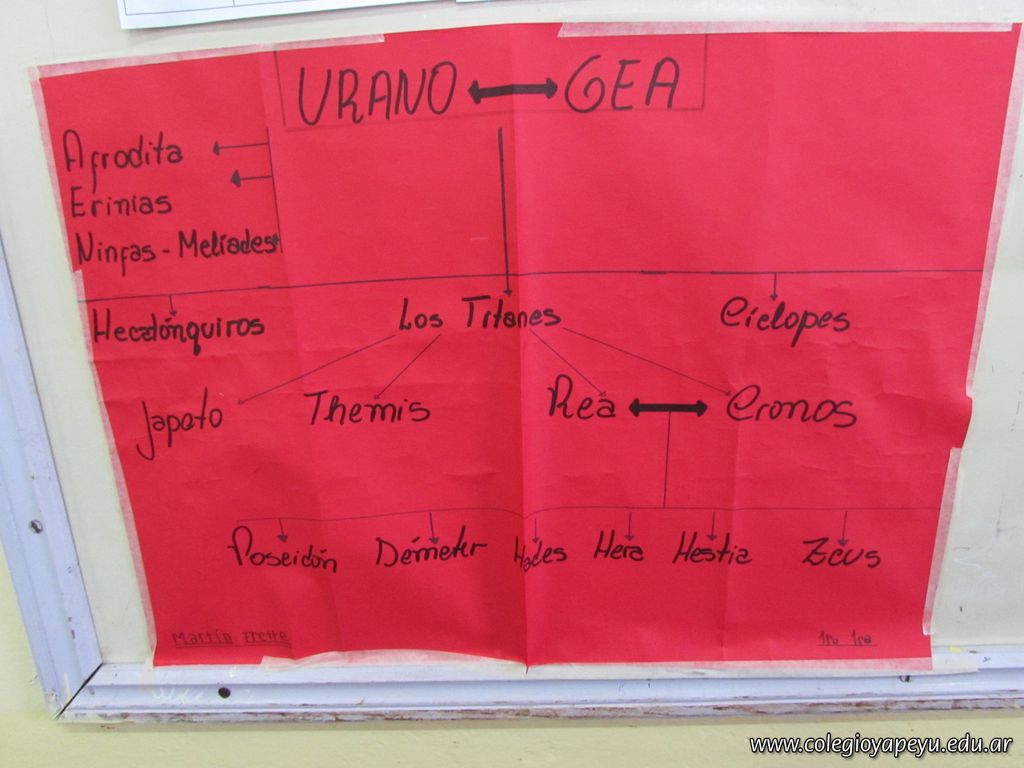 URANO GEA
Afrodita
Erinias
Ninfas - Melíades
Hecatónquiros Los Titanes Cíclopes
Japeto Themis Rea Cronos
Poseidón Démeter Hades Hera Hestia Zeus
Martín Erette 1ro 1ra
www.colegioyapeyu.edu.ar